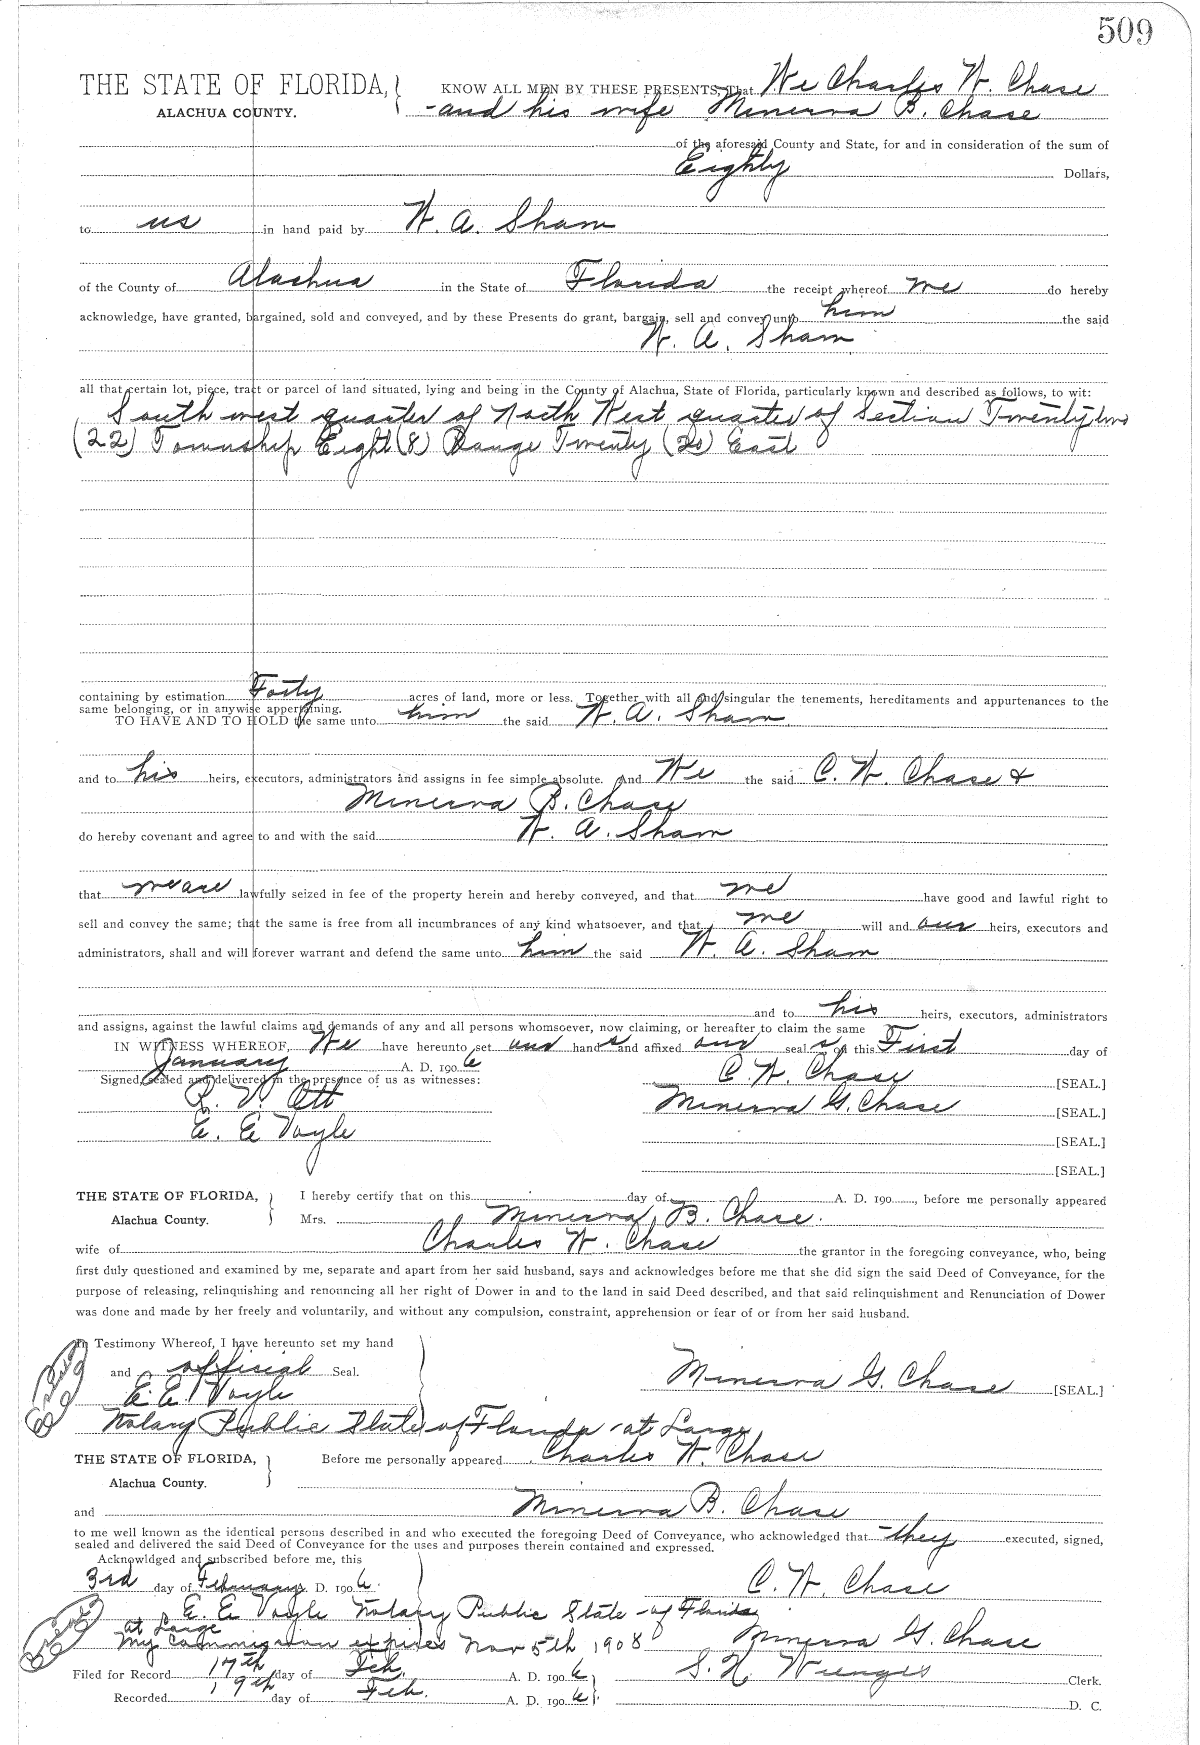 509
THE STATE OF FLORIDA, KNOW ALL MEN BY THESE PRESENTS, That We Charles W. Chase
ALACHUA COUNTY. and his wife Minerva B. Chase
of the aforesaid County and State, for and in consideration of the sum of
Eighty Dollars,
to us in hand paid by W. A. Sham
of the County of Alachua in the State of Florida the receipt whereof we do hereby
acknowledge, have granted, bargained, sold and conveyed, and by these Presents do grant, bargain, sell and convey unto him the said
W. A. Sham
all that certain lot, piece, tract or parcel of land situated, lying and being in the County of Alachua, State of Florida, particularly known and described as follows, to wit:
South west quarter of North West quarter of Section Twenty two
(22) Township Eight (8) Range Twenty (20) East
containing by estimation Forty acres of land, more or less. Together with all and singular the tenements, hereditaments and appurtenances to the
same belonging, or in anywise appertaining.
TO HAVE AND TO HOLD the same unto him the said W. A. Sham
and to his heirs, executors, administrators and assigns in fee simple absolute. And We the said C. W. Chase &
Minerva B. Chase
do hereby covenant and agree to and with the said W. A. Sham
that we are lawfully seized in fee of the property herein and hereby conveyed, and that we have good and lawful right to
sell and convey the same; that the same is free from all incumbrances of any kind whatsoever, and that we will and our heirs, executors and
administrators, shall and will forever warrant and defend the same unto him the said W. A. Sham
and to his heirs, executors, administrators
and assigns, against the lawful claims and demands of any and all persons whomsoever, now claiming, or hereafter to claim the same
IN WITNESS WHEREOF, We have hereunto set our hands and affixed our seals on this First day of
January A. D. 1906
C W. Chase [SEAL.]
Signed, sealed and delivered in the presence of us as witnesses:
R. V. Ott Minerva G. Chase [SEAL.]
E. E Voyle [SEAL.]
[SEAL.]
THE STATE OF FLORIDA, I hereby certify that on this day of A. D. 190 , before me personally appeared
Alachua County. Mrs. Minerva B. Chase.
wife of Charles W. Chase the grantor in the foregoing conveyance, who, being
first duly questioned and examined by me, separate and apart from her said husband, says and acknowledges before me that she did sign the said Deed of Conveyance, for the
purpose of releasing, relinquishing and renouncing all her right of Dower in and to the land in said Deed described, and that said relinquishment and Renunciation of Dower
was done and made by her freely and voluntarily, and without any compulsion, constraint, apprehension or fear of or from her said husband.
In Testimony Whereof, I have hereunto set my hand
and official Seal.
E. E. Voyle Minerva G. Chase [SEAL.]
Notary Public State of Florida at Large
THE STATE OF FLORIDA, Before me personally appeared Charles W. Chase
Alachua County.
and Minerva B. Chase
to me well known as the identical persons described in and who executed the foregoing Deed of Conveyance, who acknowledged that they executed, signed,
sealed and delivered the said Deed of Conveyance for the uses and purposes therein contained and expressed.
Acknowldged and subscribed before me, this
3rd day of February A. D. 1906. C. W. Chase
E. E. Voyle Notary Public State of Florida
at Large
My Commission expires Nov 5th 1908 Minerva G. Chase
Filed for Record 17th day of Feb. A. D. 1906 S. H. Wienges Clerk.
Recorded 19th day of Feb. A. D. 1906. D. C.